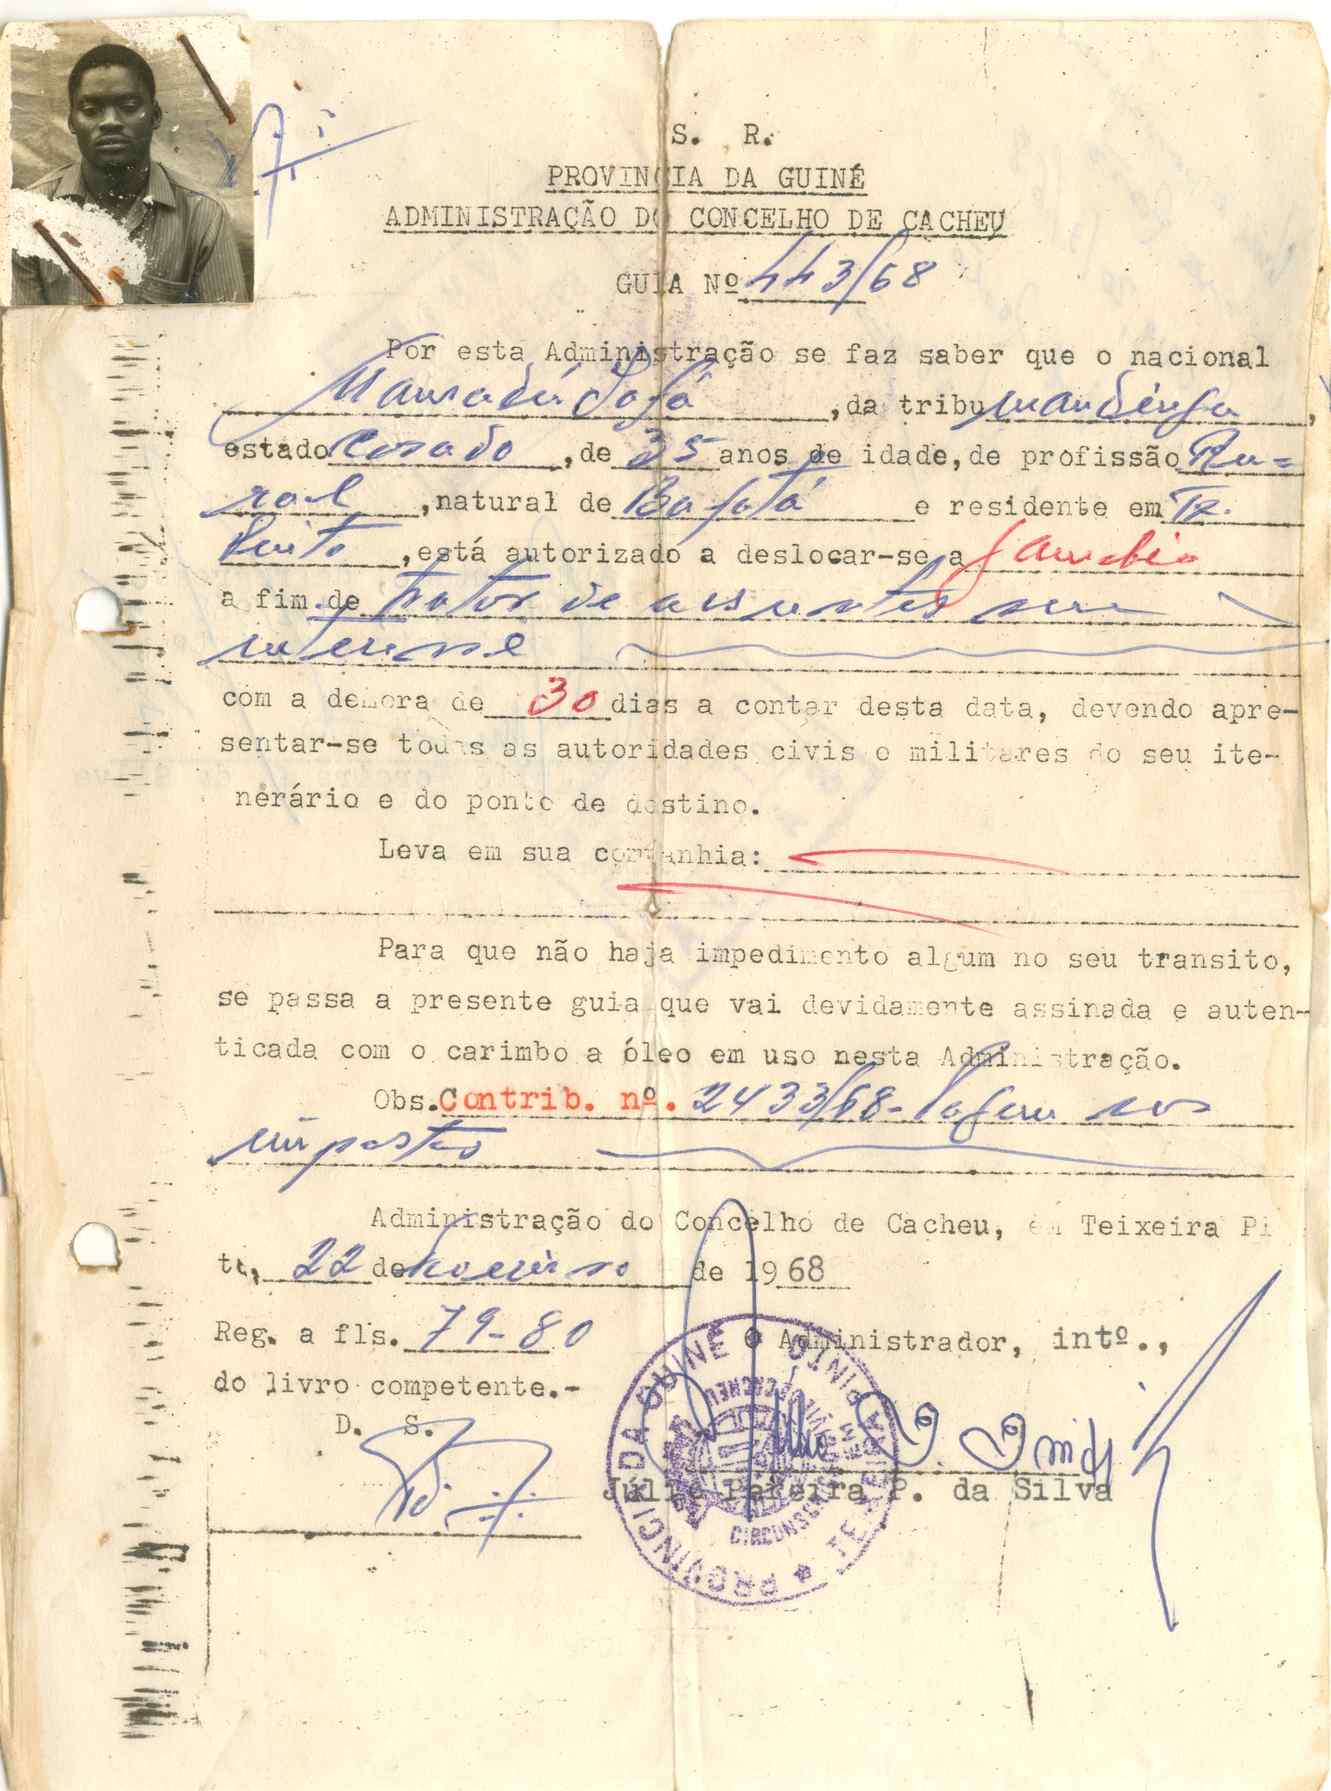 S. R.
PROVINCIA DA GUINÉ
ADMINISTRAÇÃO DO CONCELHO DE CACHEU
GUIA Nº 443/68
Por esta Administração se faz saber que o nacional
,da tribu mandinga,
estado Casado, de 35 anos de idade, de profissão Ru-
ral, natural de Bafatá e residente em Tx.
Pinto, está autorizado a deslocar-se a Gambia
a fim de tratar de assuntos seu
interesse
com a demora de 30 dias a contar desta data, devendo apre-
sentar-se todas as autoridades civis e militares do seu ite-
nerário e do ponto de destino.
Leva em sua companhia:
Para que não haja impedimento algum no seu transito,
se passa a presente guia que vai devidamente assinada e auten-
ticada com o carimbo a óleo em uso nesta Administração.
Obs. Contrib. nº. 2433/68- Pagou sos
impostos
Administração do Concelho de Cacheu, em Teixeira Pi
to, 22 de de 1968
Reg. a fls. 79-80 O Administrador, intº.,
do livro competente.-
D. S.
Júlio Pereira P. da Silva
PROVINCIA DA GUINÉ
TEIXEIRA PINTO
CACHEU